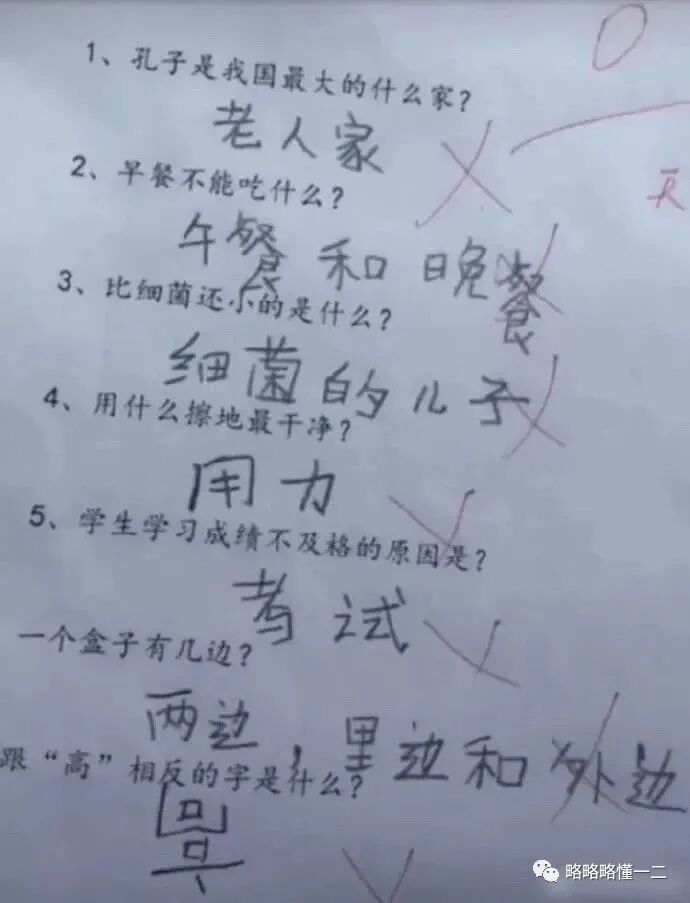 1、孔子是我国最大的什么家？
老人家
2、早餐不能吃什么？
午餐和晚餐
3、比细菌还小的是什么？
细菌的儿子
4、用什么擦地最干净？
用力
5、学生学习成绩不及格的原因是？
考试
一个盒子有几边？
两边，里边和外边
跟“高”相反的字是什么？
略略略懂一二